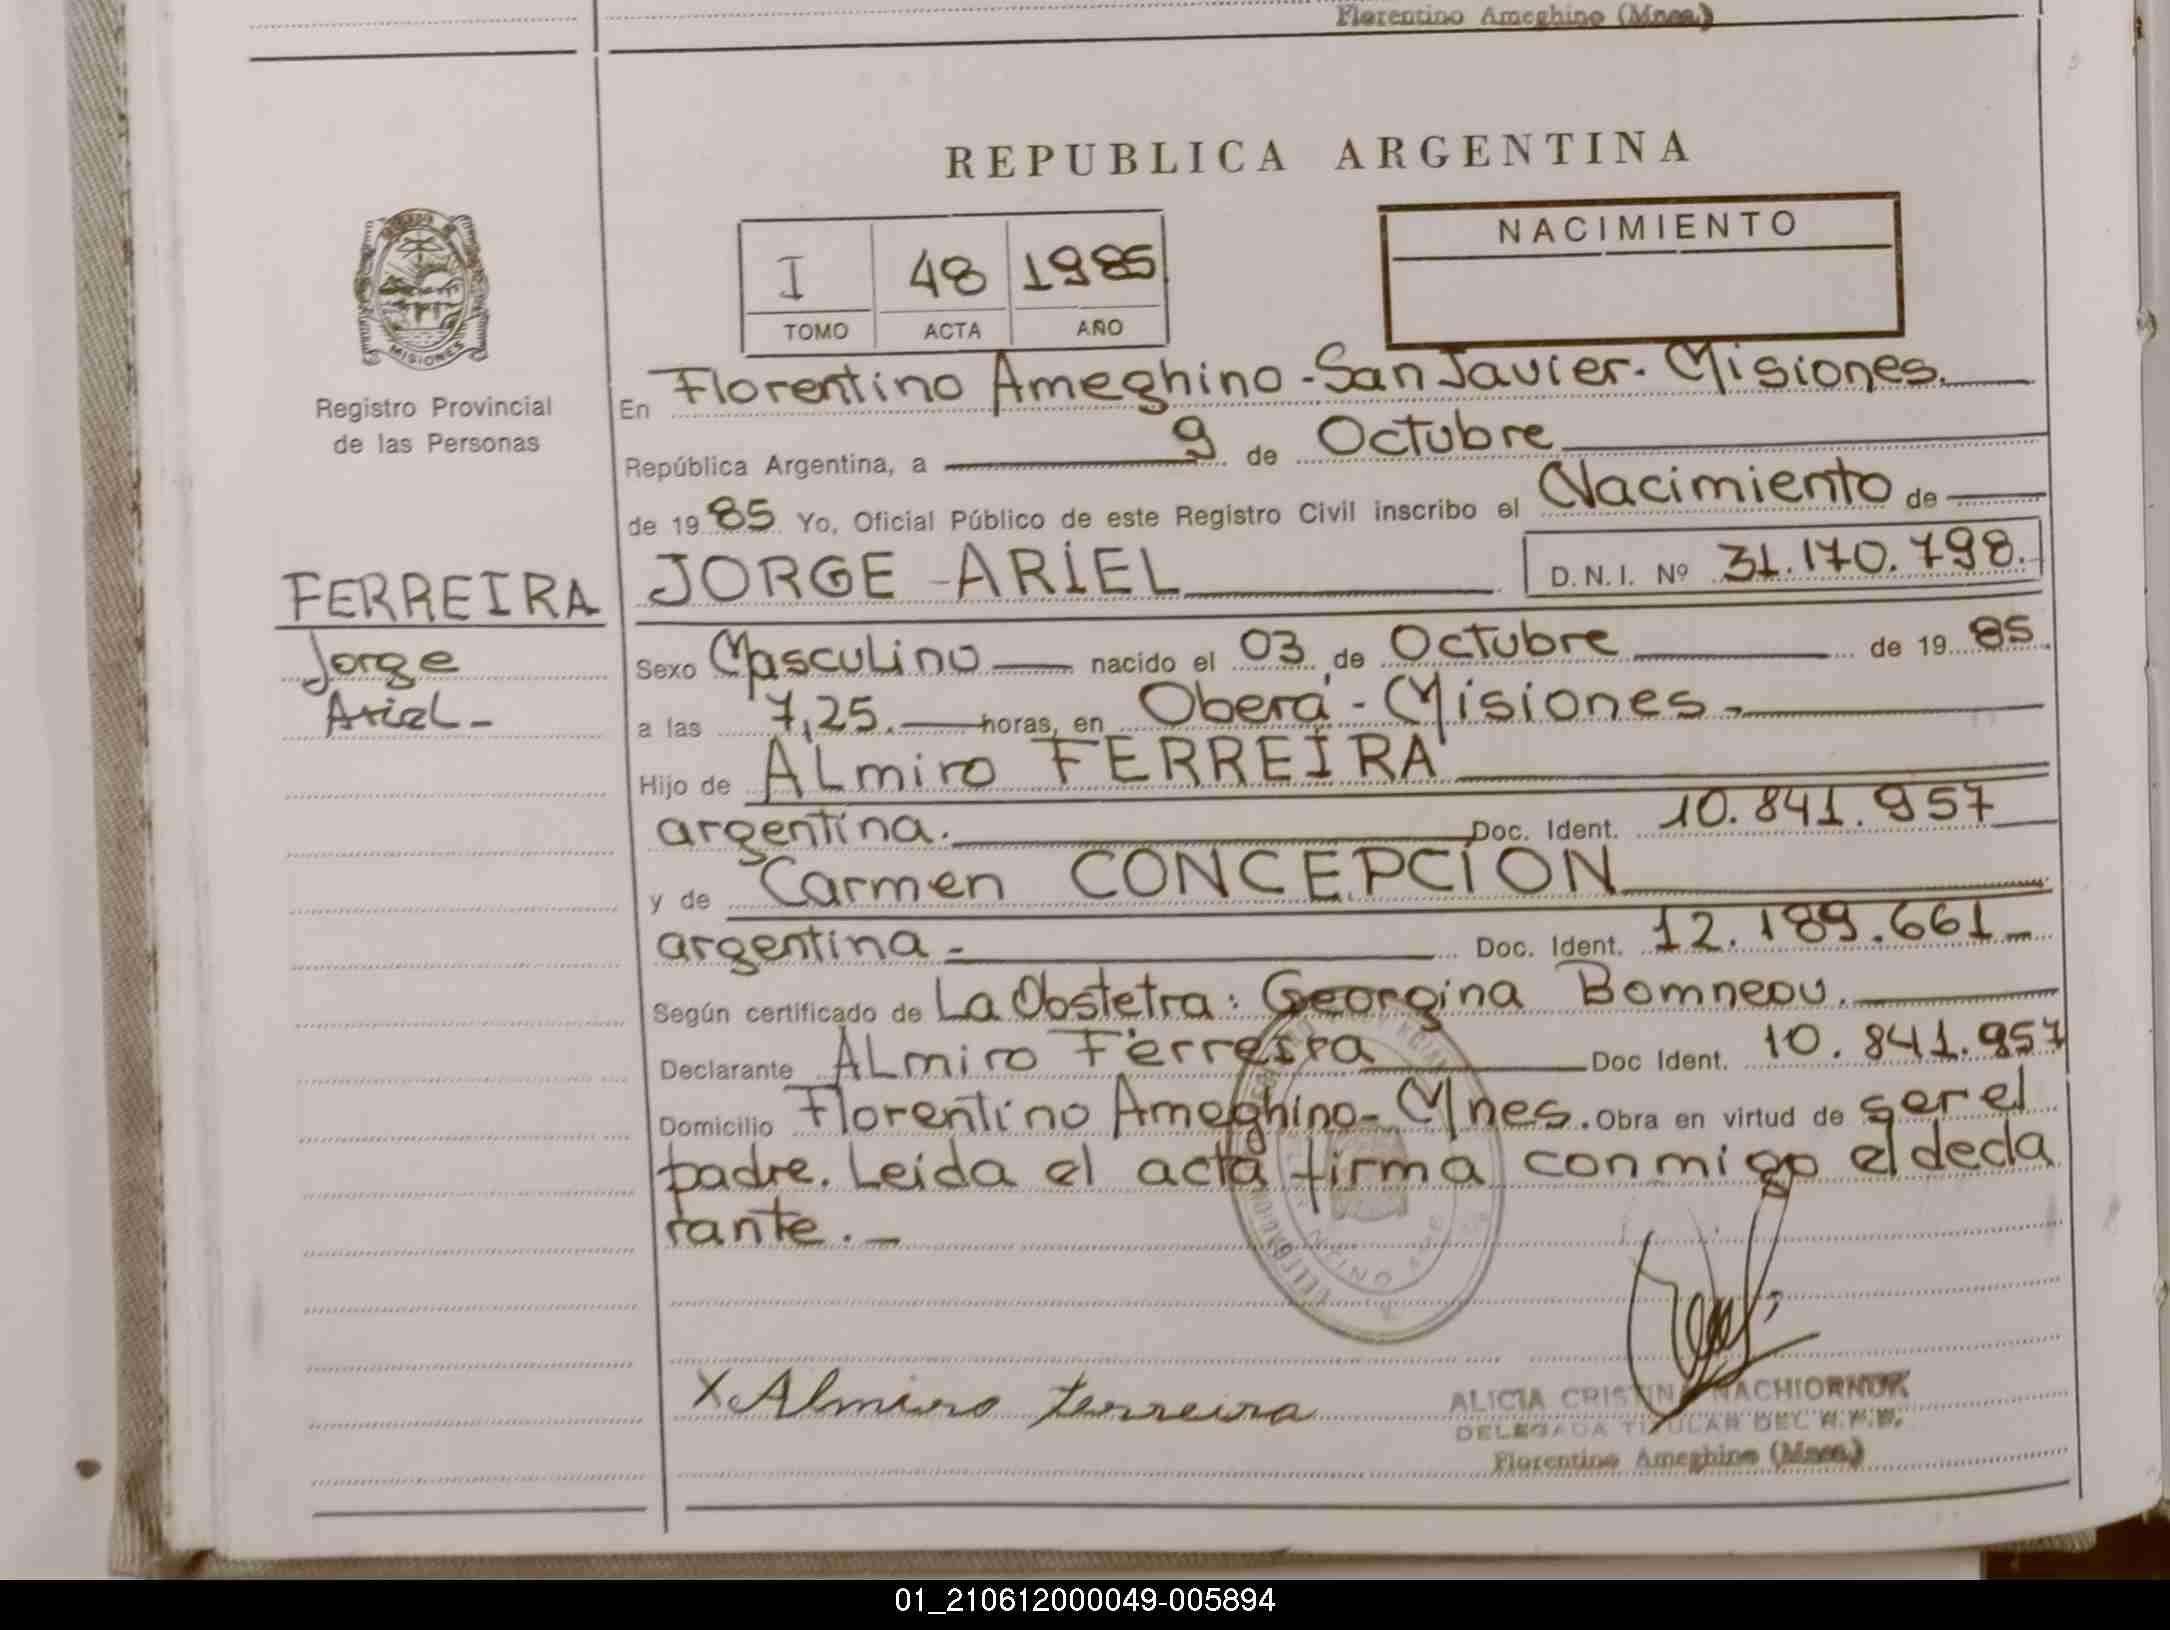 Florentino Ameghino (Mnes.)
REPUBLICA ARGENTINA
NACIMIENTO
I 48 1985
TOMO ACTA AÑO
MISIONES
Registro Provincial
de las Personas
FERREIRA
Jorge
Ariel-
En Florentino Ameghino-San Javier-Misiones.
República Argentina, a 9 de Octubre
de 1985 Yo, Oficial Público de este Registro Civil inscribo el Nacimiento de
JORGE ARIEL D.N.I. Nº 31.170.798.
Sexo Masculino nacido el 03 de Octubre de 1985
a las 7,25. horas, en Oberá-Misiones.
Hijo de ALmiro FERREIRA
argentina. Doc. Ident. 10.841.957
y de Carmen CONCEPCIÓN
argentina- Doc. Ident. 12.189.661-
Según certificado de La Obstetra: Georgina
Declarante ALmiro Ferreira Doc Ident. 10.841.957
Domicilio Florentino Ameghino-Mnes. Obra en virtud de ser el
padre. Leida el acta firma conmigo el decla
rante.-
X Almiro Ferreira
ALICIA CRISTINA
DELEGADA TITULAR DEL
Florentino Ameghino (Mnes.)
01_210612000049-005894